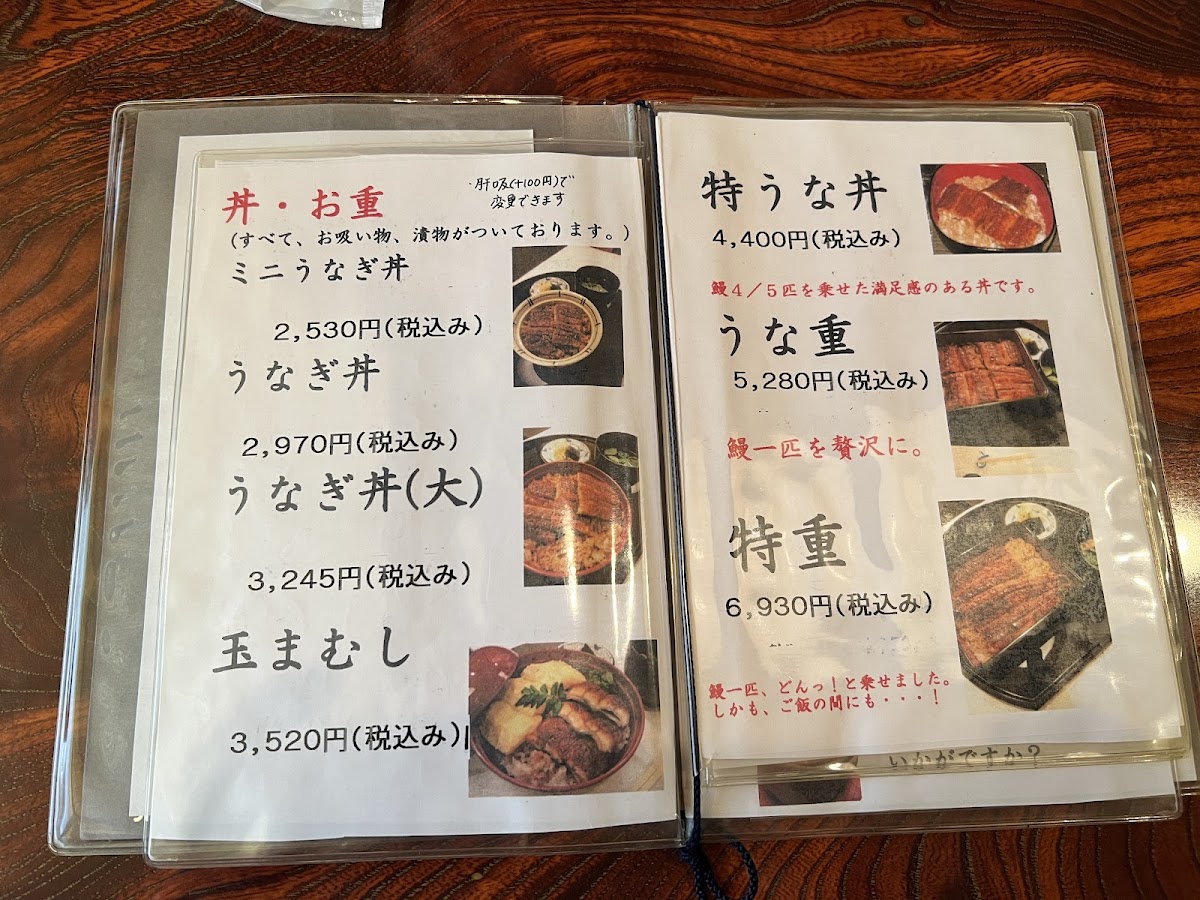 丼・お重
・肝吸(+100円)で
変更できます
(すべて、お吸い物、漬物がついております。)
ミニうなぎ丼
2,530円(税込み)
うなぎ丼
2,970円(税込み)
うなぎ丼(大)
3,245円(税込み)
玉まむし
3,520円(税込み)
特うな丼
4,400円(税込み)
鰻4/5匹を乗せた満足感のある丼です。
うな重
5,280円(税込み)
鰻一匹を贅沢に。
特重
6,930円(税込み)
鰻一匹、どんっ!と乗せました。
しかも、ご飯の間にも・・・!
いかがですか?